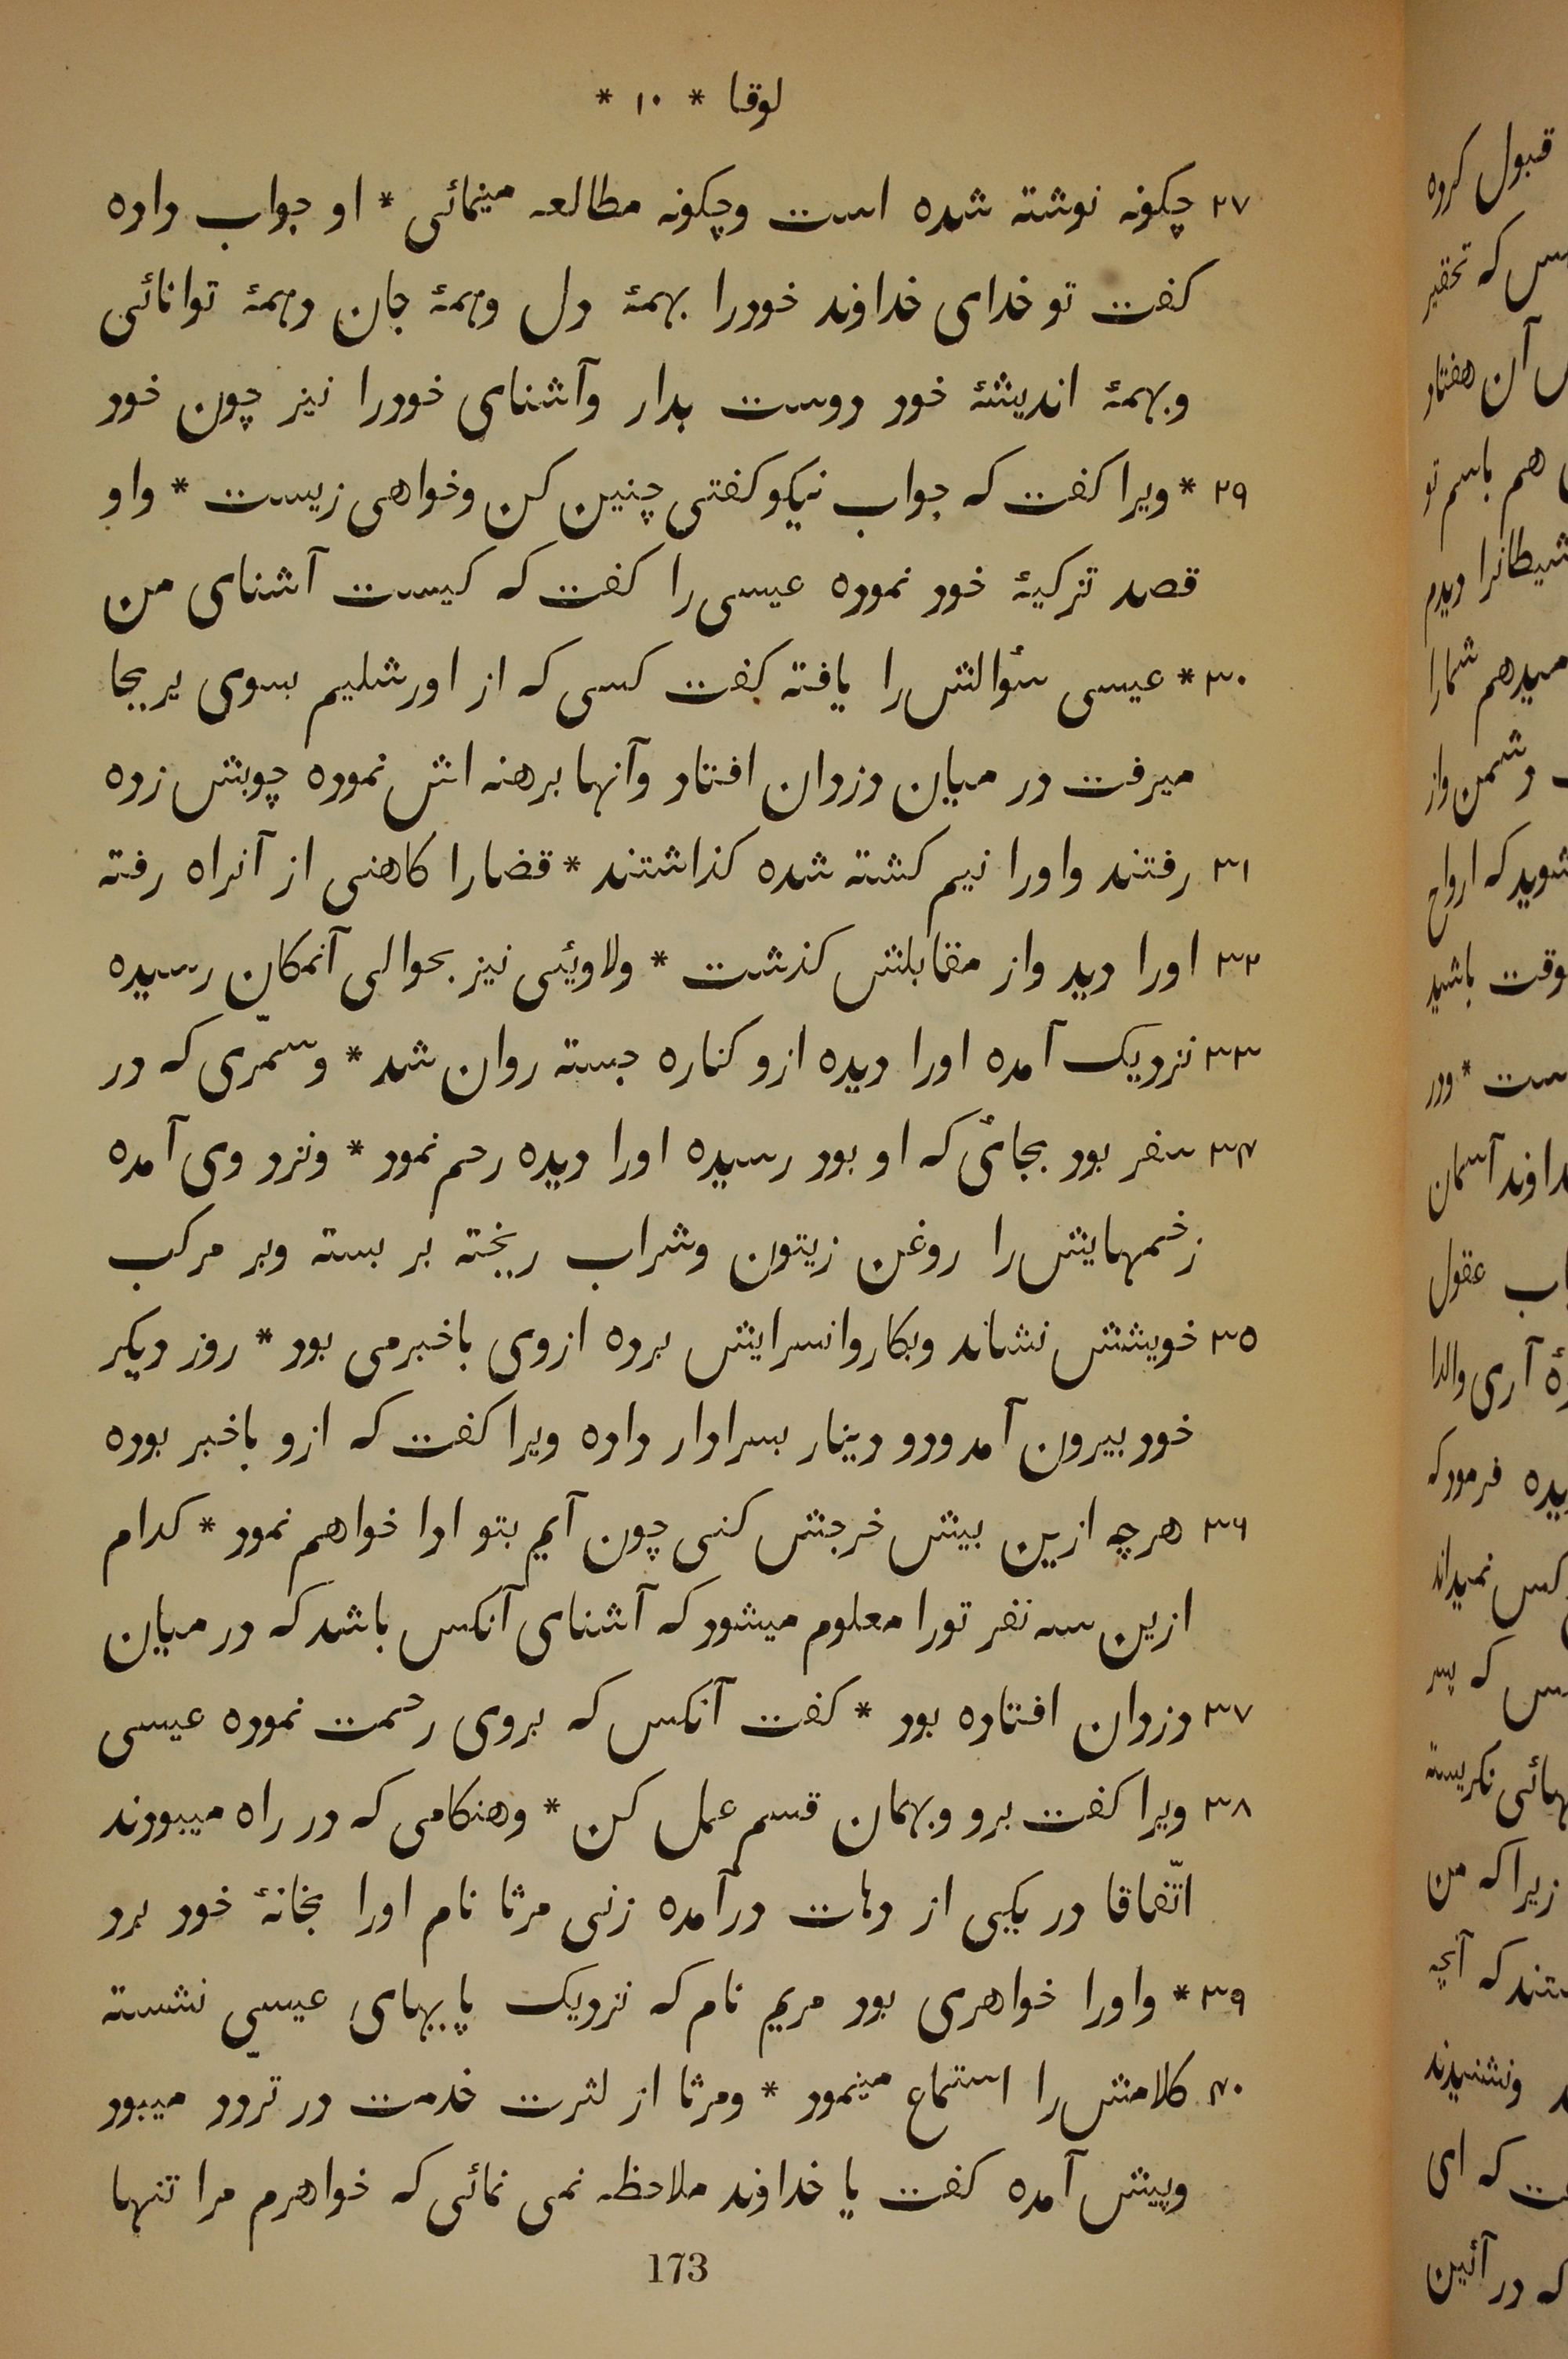 لوقا * ۱۰ *
۲۷ چکونه نوشته شده است وچکونه مطالعه مینمائی * او جواب داده
کفت تو خدای خداوند خودرا بهمهٔ دل وهمهٔ جان وهمهٔ توانائی
وبهمهٔ اندیشهٔ خود دوست بدار وآشنای خودرا نیز چون خود
۲۹ * ویرا کفت که جواب نیکو کفتی چنین کن وخواهی زیست * واو
قصد تزکیهٔ خود نموده عیسی را کفت که کیست آشنای من
۳۰ * عیسی سؤالش را یافته کفت کسی که از اورشلیم بسوی یریحا
میرفت در میان دزدان افتاد وآنها برهنه اش نموده چوبش زده
۳۱ رفتند واورا نیم کشته شده کذاشتند * قضارا کاهنی از آنراه رفته
۳۲ اورا دید واز مقابلش کذشت * ولاویئی نیز بحوالی آنمکان رسیده
۳۳ نزدیک آمده اورا دیده ازو کناره جسته روان شد * وسمّری که در
۳۴ سفر بود بجائی که او بود رسیده اورا دیده رحم نمود * ونزد وی آمده
زخمهایش را روغن زیتون وشراب ریخته بر بسته وبر مرکب
۳۵ خویشش نشاند وبکاروانسرایش برده ازوی باخبرمی بود * روز دیکر
خود بیرون آمد ودو دینار بسرادار داده ویرا کفت که ازو باخبر بوده
۳۶ هرچه ازین بیش خرجش کنی چون آیم بتو ادا خواهم نمود * کدام
ازین سه نفر تورا معلوم میشود که آشنای آنکس باشد که در میان
۳۷ دزدان افتاده بود * کفت آنکس که بروی رحمت نموده عیسی
۳۸ ویرا کفت برو وبهمان قسم عمل کن * وهنکامی که در راه میبودند
اتّفاقا در یکیی از دهات درآمده زنی مرثا نام اورا بخانهٔ خود برد
۳۹ * واورا خواهری بود مریم نام که نزدیک پایهای عیسی نشسته
۴۰ کلامش را استماع مینمود * ومرثا از کثرت خدمت در تردّد میبود
وپیش آمده کفت یا خداوند ملاحظه نمی نمائی که خواهرم مرا تنها
173
قبول کرده
که تحقیر
آن هفتاد
هم باسم تو
شیطانرا دیدم
میدهم شمارا
دشمن واز
شوید که ارواح
وقت باشید
ودر
خداوند آسمان
عقول
آری والدا
فرمود که
کس نمیداند
که پسر
نکریسته
زیرا که من
که آنچه
ونشنیدند
که ای
که در آئین